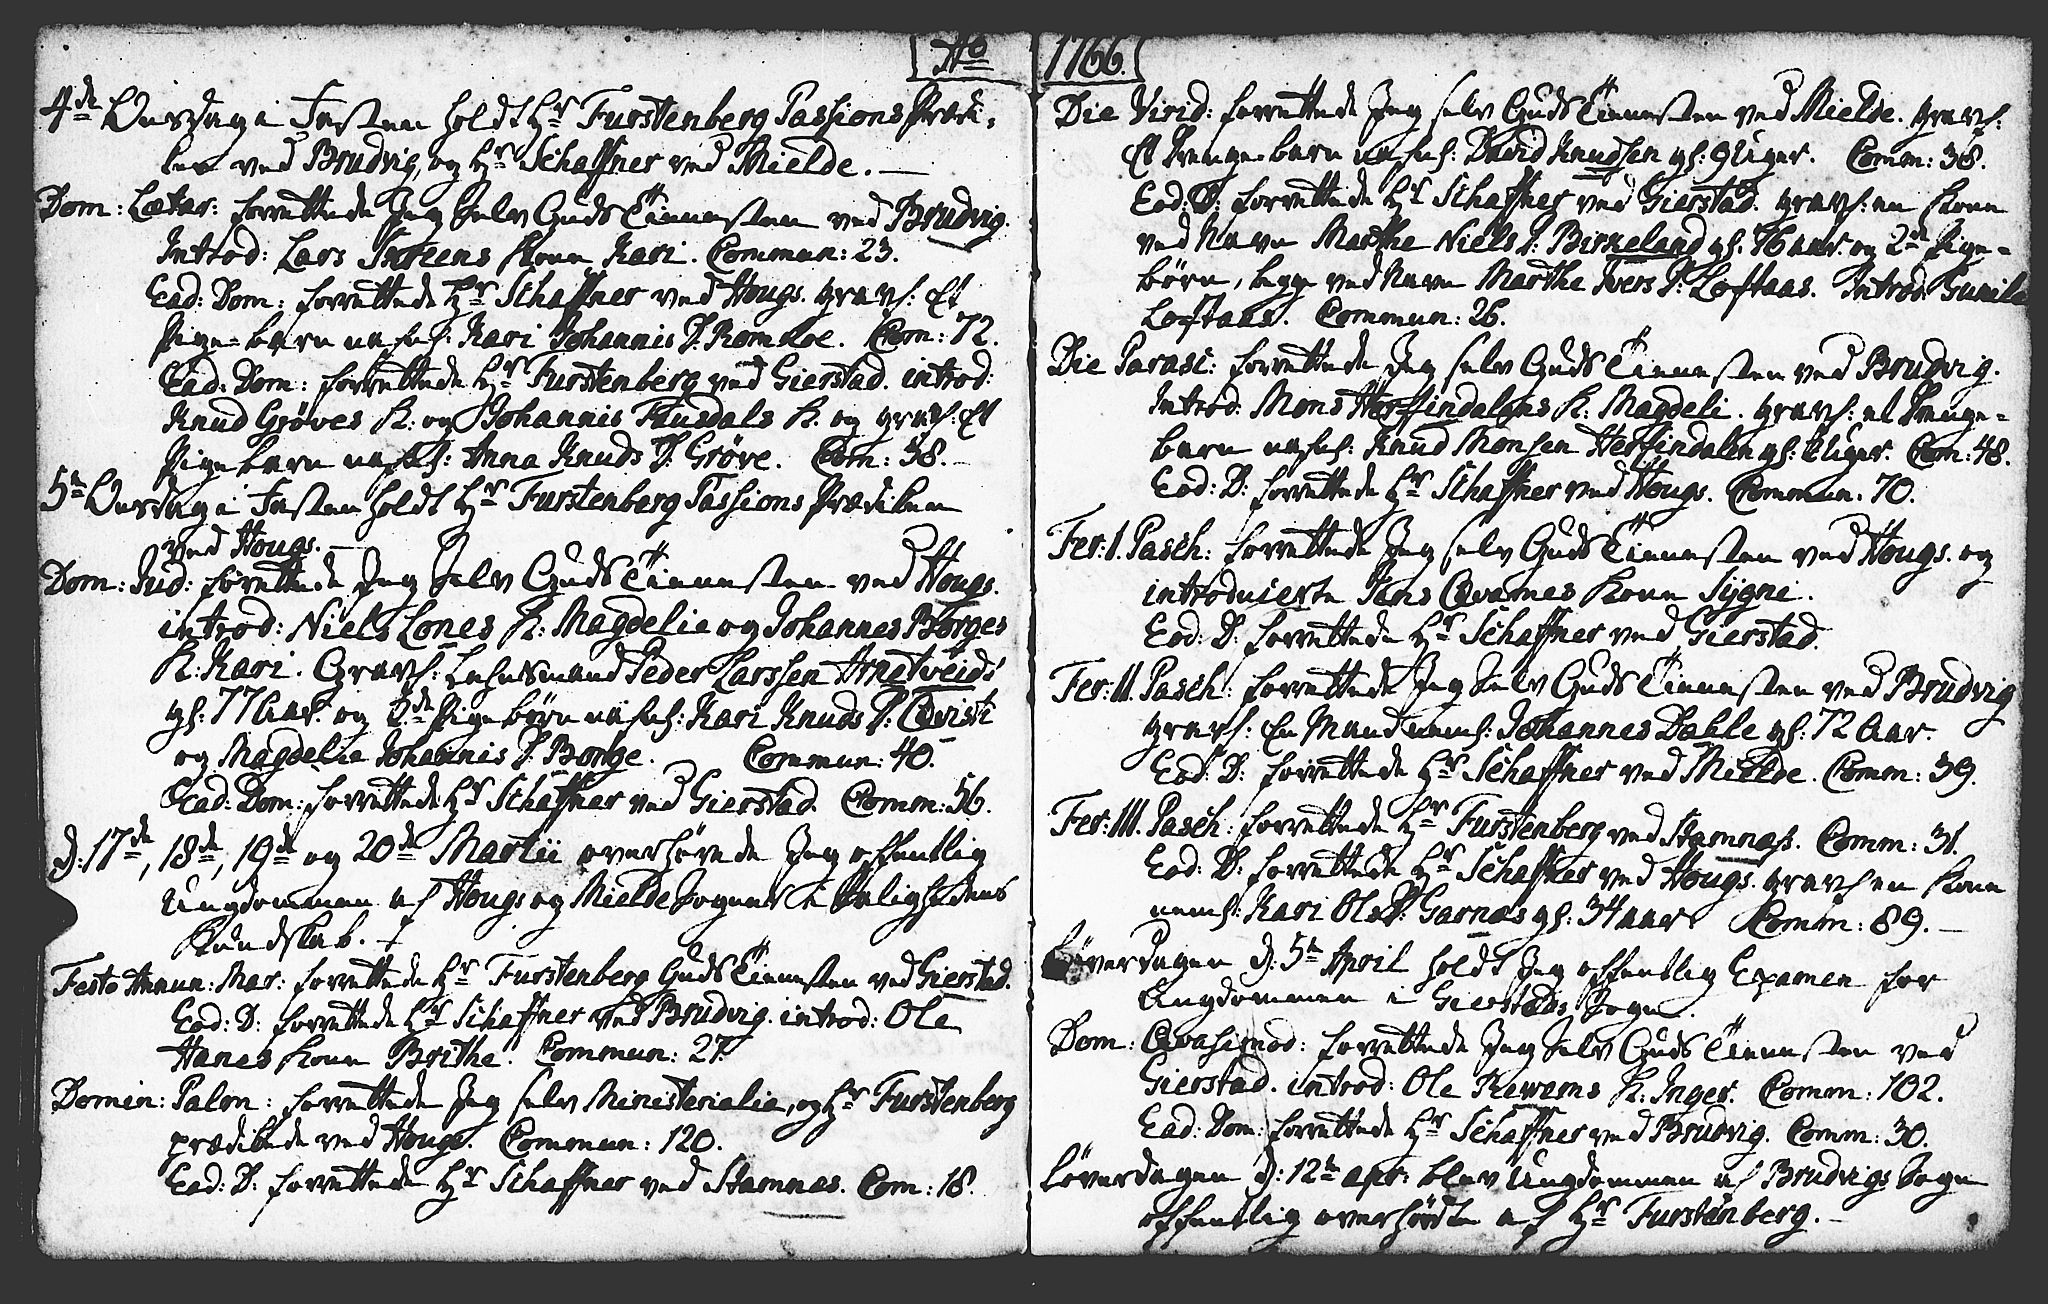 Ao
4de Onsdag i Fasten holdt Hr Furstenberg Passions Prædi-
ken ved Brudvig, og Hr Schaffner ved Mielde.
Dom: Lætar: forrettede Jeg Selv Guds Tienesten ved Brudvig.
Introd: Lars Kone Kari. Commun: 23.
Ead: Dom: forrettede Hr Schaffner ved Hougs. Gravf: Et
Pige-barn nafnl: Kari Johannis D. Romsloe. Com: 72.
Ead: Dom: forrettede Hr Furstenberg ved Gierstad. introd:
Knud Grøves K: og Johannis K. og gravf: Et
Pigebarn nafnl: Anna Knuds D: Grøve. Com: 38.
5te Onsdag i Fasten holdt Hr Furstenberg Passions Prædiken
ved Hougs.
Dom: Jud: forrettede Jeg Selv Guds Tienesten ved Hougs.
introd: Niels Lones K: Magdelie og Johannes Borges
K: Kari. Gravf: Lehnsmand Peder Larssen Arnetveidt
gl: 77 Aar. og 2de Pigebørn nafnl: Kari Knuds D: Qvisti
og Magdelie Johannis D: Borge. Commun: 40.
Ead: Dom: forrettede Hr Schaffner ved Gierstad. Comm: 56.
d: 17de, 18de, 19de og 20de Martii overhørede Jeg offentlig
Ungdommen af Hougs og Mielde Sogner i Salighedens
Kundskab.
Festo Annun: Mar: forrettede Hr Furstenberg Guds Tienesten ved Gierstad.
Eod: D: forrettede Hr Schaffner ved Brudvig. introd: Ole
Hanes Kone Brithe. Commun: 27.
Domin: Palm: forrettede Jeg selv Ministerialia, og Hr Furstenberg
prædikede ved Hougs. Commun: 120.
Ead: D: forrettede Hr Schaffner ved Stamnæs. Com: 18.
1766.
Die Virid: forrettede Jeg selv Guds Tienesten ved Mielde. gravf:
Et Drengebarn nafnl: David Knudsen gl: 9 Uger. Comm: 38.
Eod: D: forrettede Hr Schaffner ved Gierstad. gravf: en Kone
ved Navn Marthe Niels D: Birkeland gl: 76 aar. og 2de Pige-
børn, begge ved Navn Marthe Ivers D: Loftaas. Introd: Gunilde
Loftaas. Commun: 26.
Die Parasc: forrettede Jeg selv Guds Tienesten ved Brudvig.
Introd: Mons Herfindalens K: Magdeli. gravf: et Drenge-
barn nafnl: Knud Monsen Herfindalen gl: Uger. Com: 48.
Eod: D: forrettede Hr Schaffner ved Hougs. Commun. 70.
Fer: I. Pasch: forrettede Jeg selv Guds Tienesten ved Hougs. og
introducierte Jens Qvamnes Kone Sygni.
Eod: D: forrettede Hr Schaffner ved Gierstad.
Fer: II. Pasch: forrettede Jeg Selv Guds Tienesten ved Brudvig
gravf: En Mand neml: Johannes Dahle gl: 72 Aar.
Eod: D: forrettede Hr Schaffner ved Mielde. Comm: 39.
Fer: III. Pasch: forrettede Hr Furstenberg ved Stamnæs. Comm: 31.
Eod: D: forrettede Hr Schaffner ved Hougs. gravf: en Kone
neml: Kari Ols D: Garnæs gl: 34 aar Comm: 89.
Løverdagen d: 5te April holdt Jeg offentlig Examen for
Ungdommen i Gierstads Sogn.
Dom: Qvasimod: forrettede Jeg Selv Guds Tienesten ved
Gierstad. introd: Ole K: Inger. Comm: 102.
Ead: Dom: forrettede Hr Schaffner ved Brudvig. Comm: 30.
Løverdagen d: 12te apr: blev Ungdommen af Brudvigs Sogn
offentlig overhørdte af Hr Furstenberg.